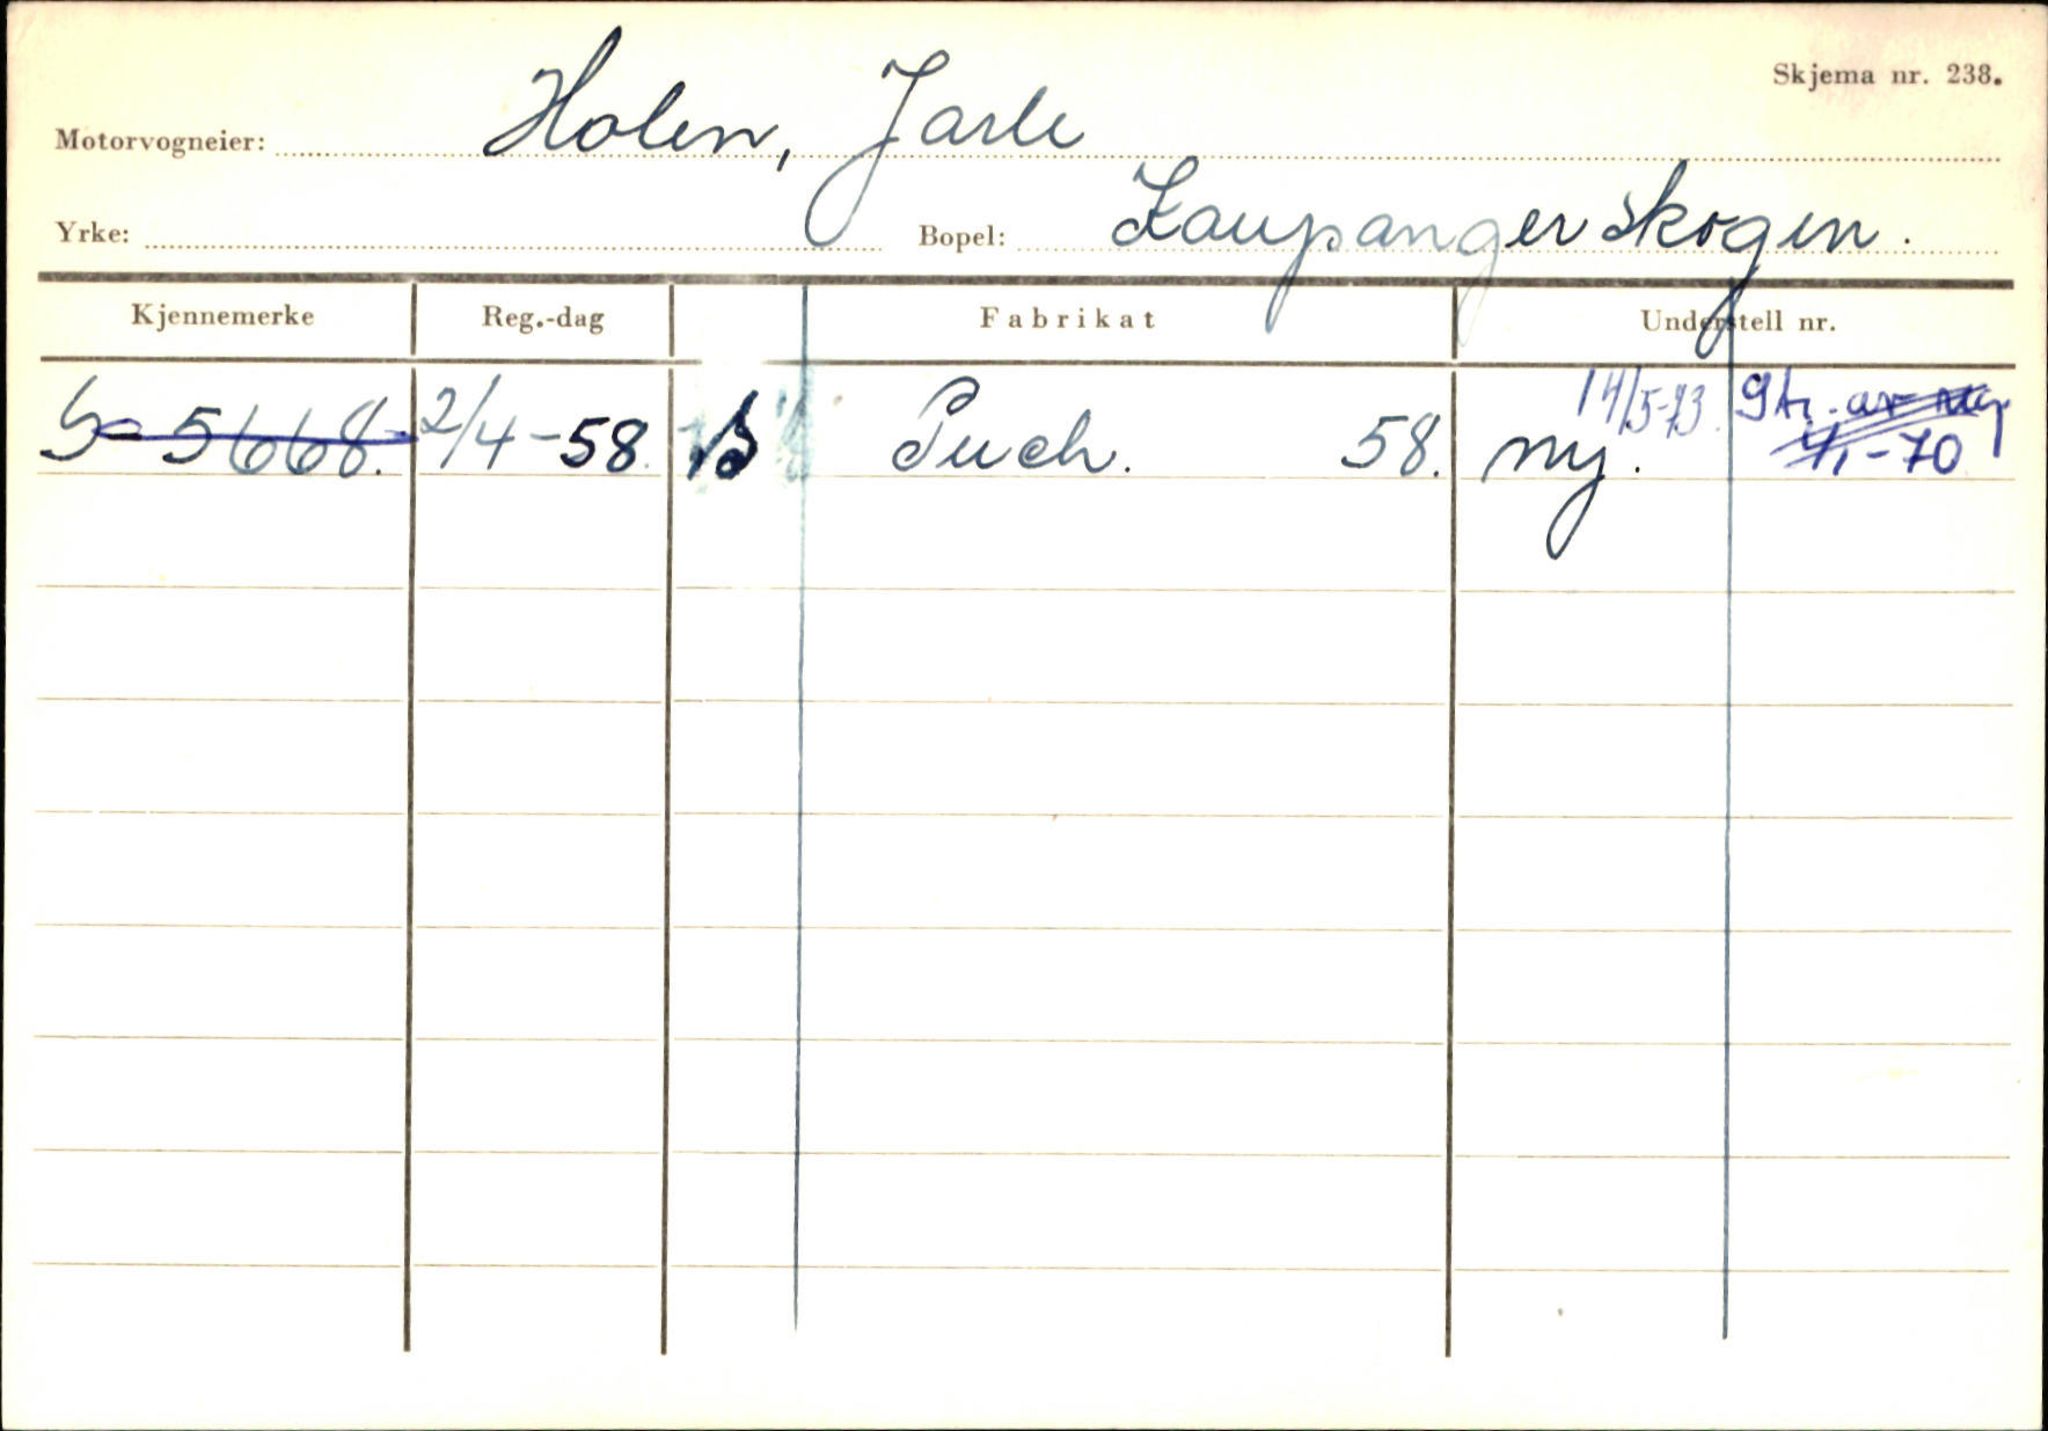 Skjema nr. 238.
Motorvogneier: Holen, Jarle
Yrke: Bopel: Kaupangerskogen.
Kjennemerke Reg.-dag Fabrikat Understell nr.
S-5668. 2/4-58. Puch. 58. ny. 14/5-73. Str. av reg.
1/1-70